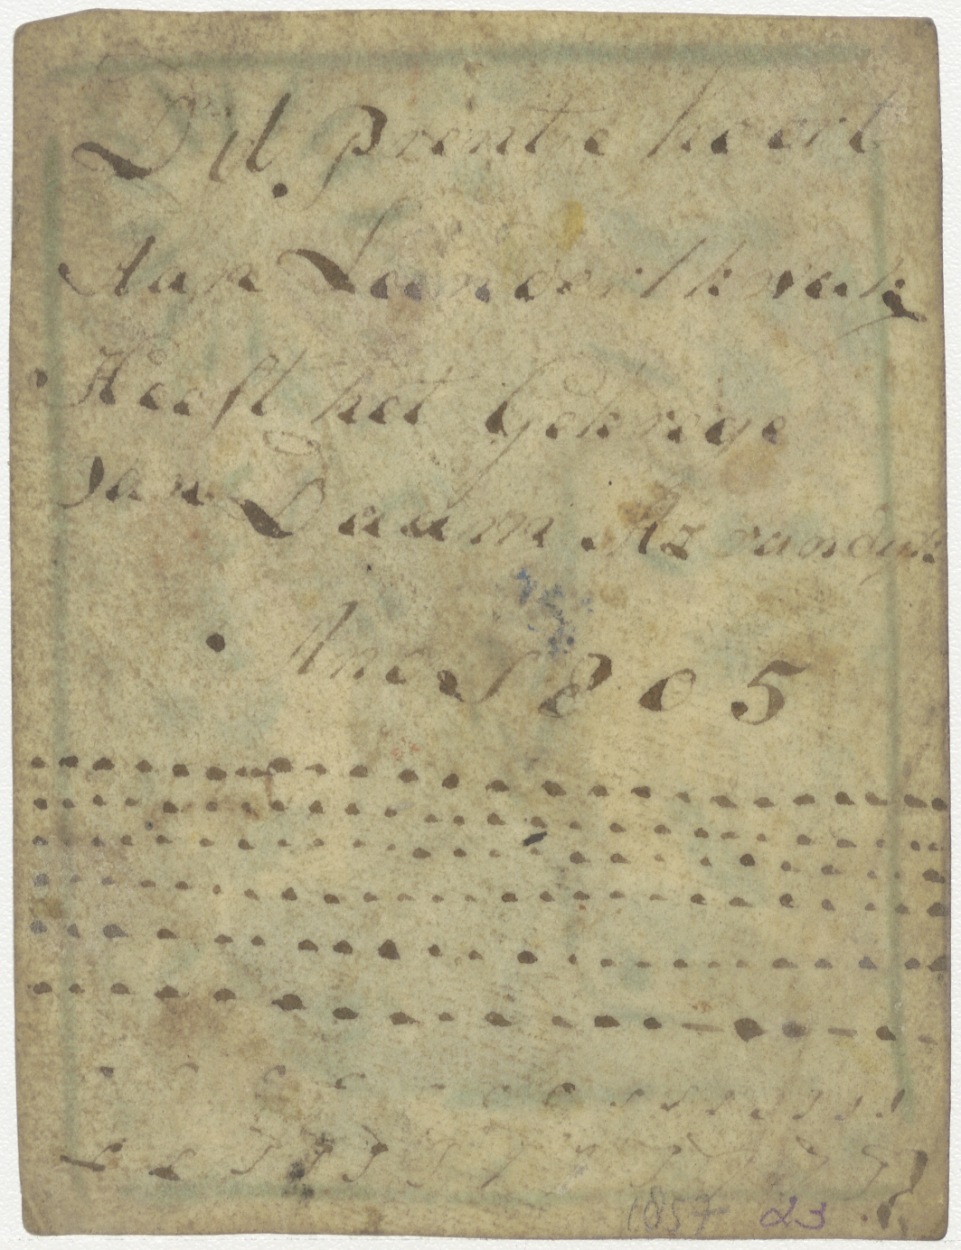 Dit prentie hoort
Aan Leendert kwak
Heeft het Gekrege
van Daam Az vandijk
Ano 1805
1857 23